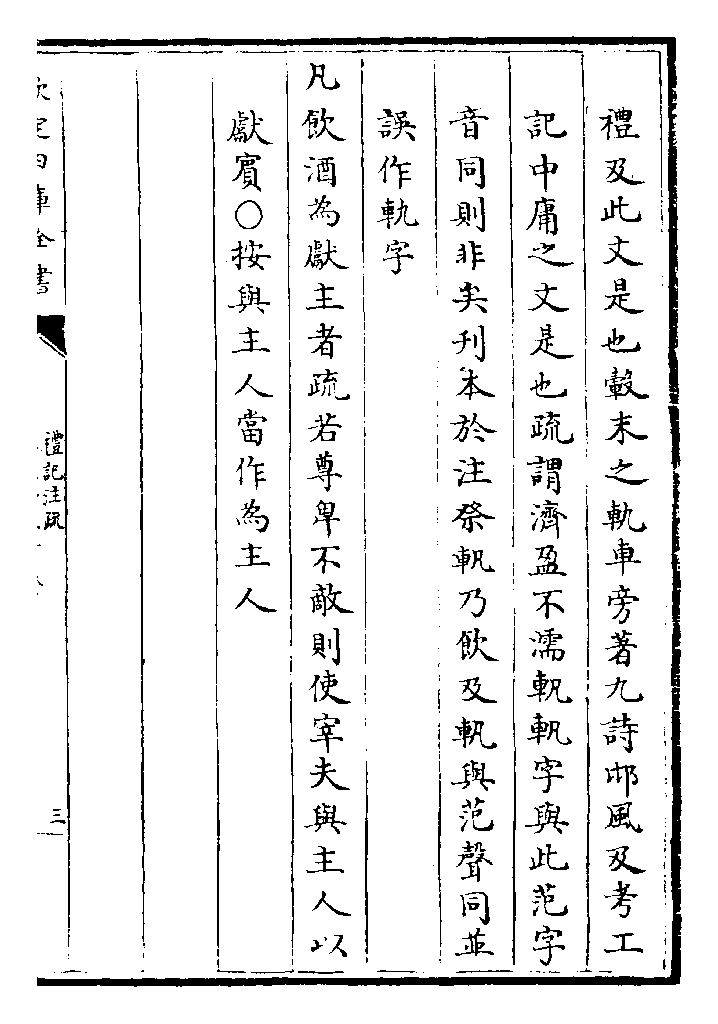 禮及此文是也轂末之軌車旁著九詩邶風及考工
記中庸之文是也疏謂濟盈不濡軓軓字與此范字
音同則非矣刋本於注祭軓乃飲及軓與范聲同並
誤作軌字
凡飲酒為獻主者疏若尊卑不敵則使宰夫與主人以
獻賓○按與主人當作為主人
欽定四庫全書
禮記注疏
三